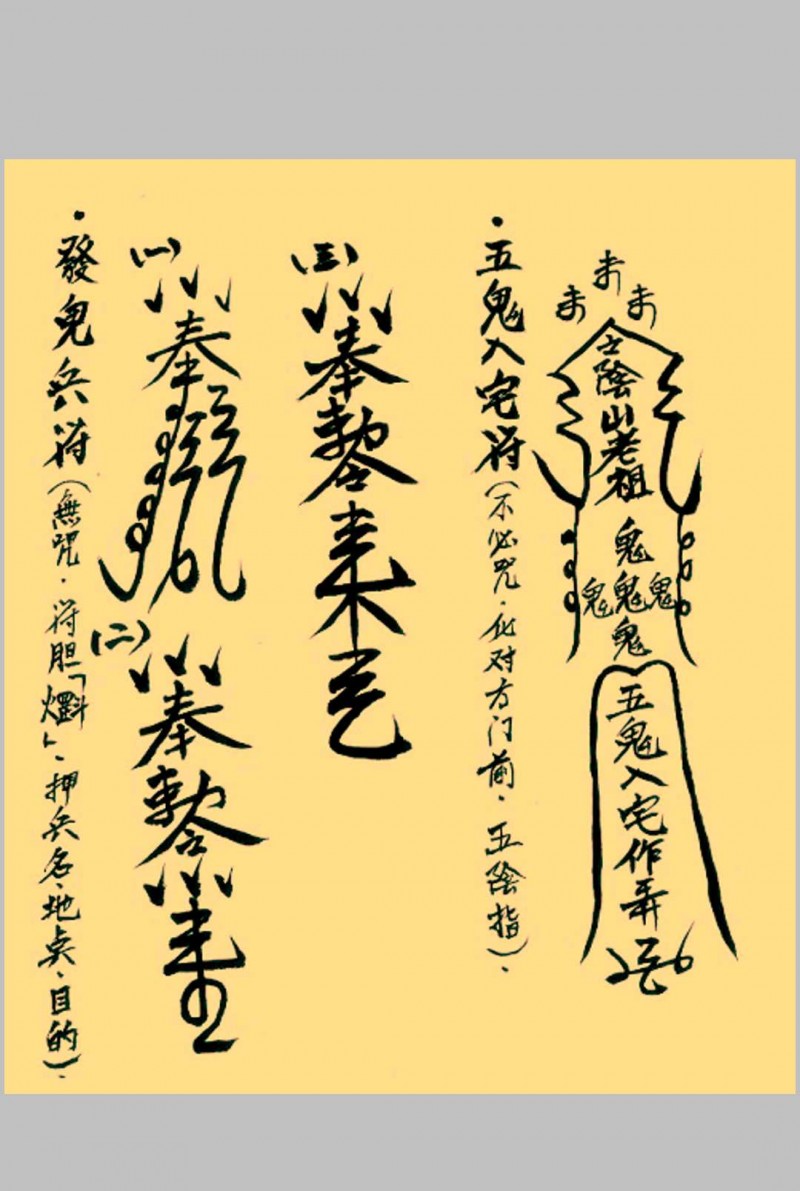 士陰山老祖
鬼
鬼鬼鬼
鬼
五鬼入宅作弄
・五鬼入宅符(不必咒・化对方门前・五陰指)・
(三)
奉
勅令
(一)
奉
(二)
奉
勅令
・發鬼兵符(無咒・符胆「」・押兵名・地点・目的)・